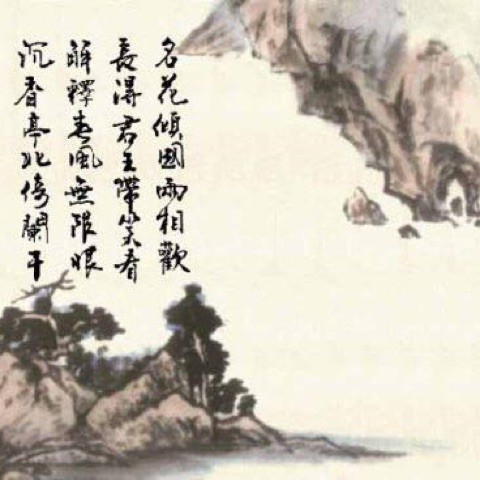 名花傾國兩相歡
長得君王帶笑看
解釋春風無限恨
沉香亭北倚闌干